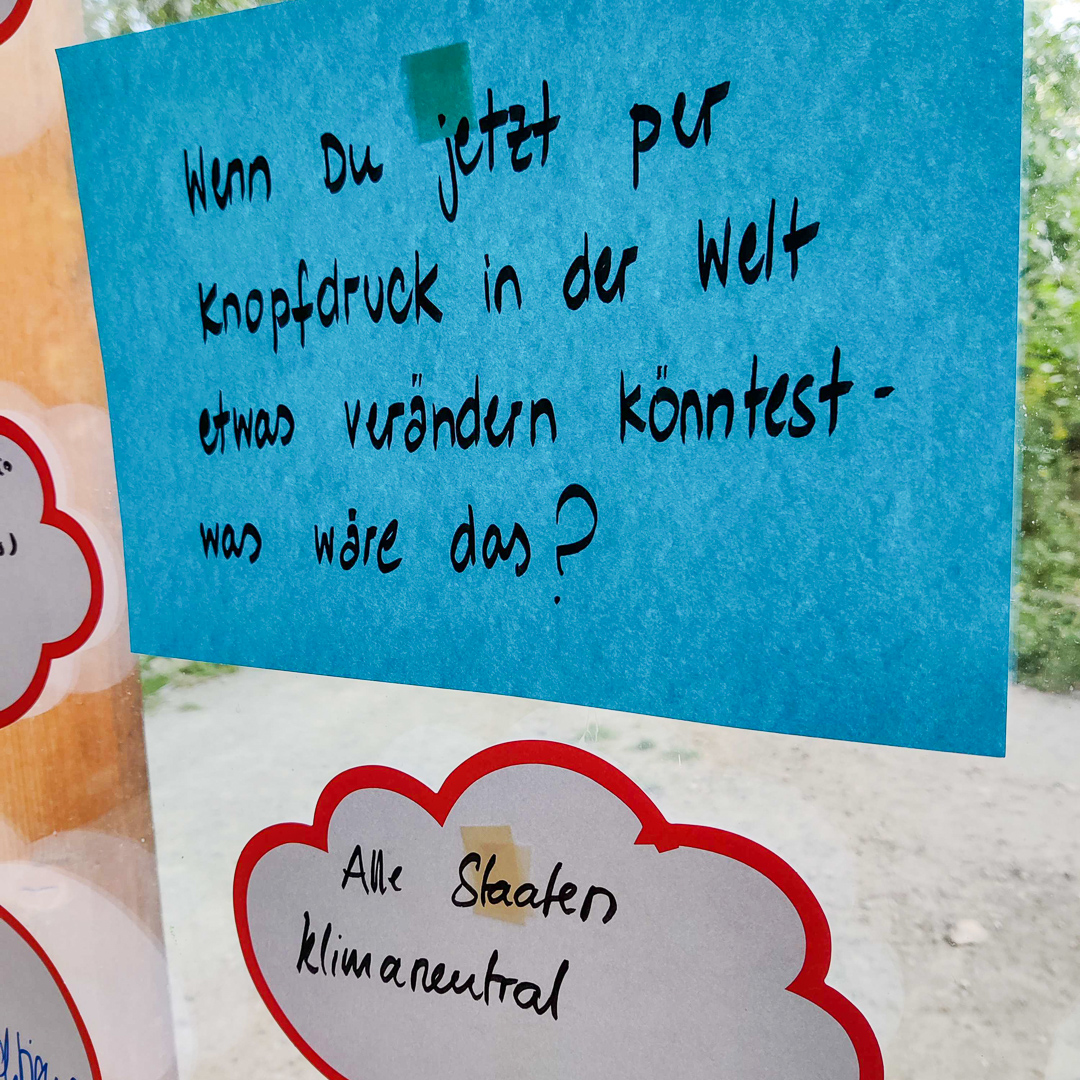 Wenn Du jetzt per
Knopfdruck in der Welt
etwas verändern könntest -
was wäre das?
Alle Staaten
klimaneutral